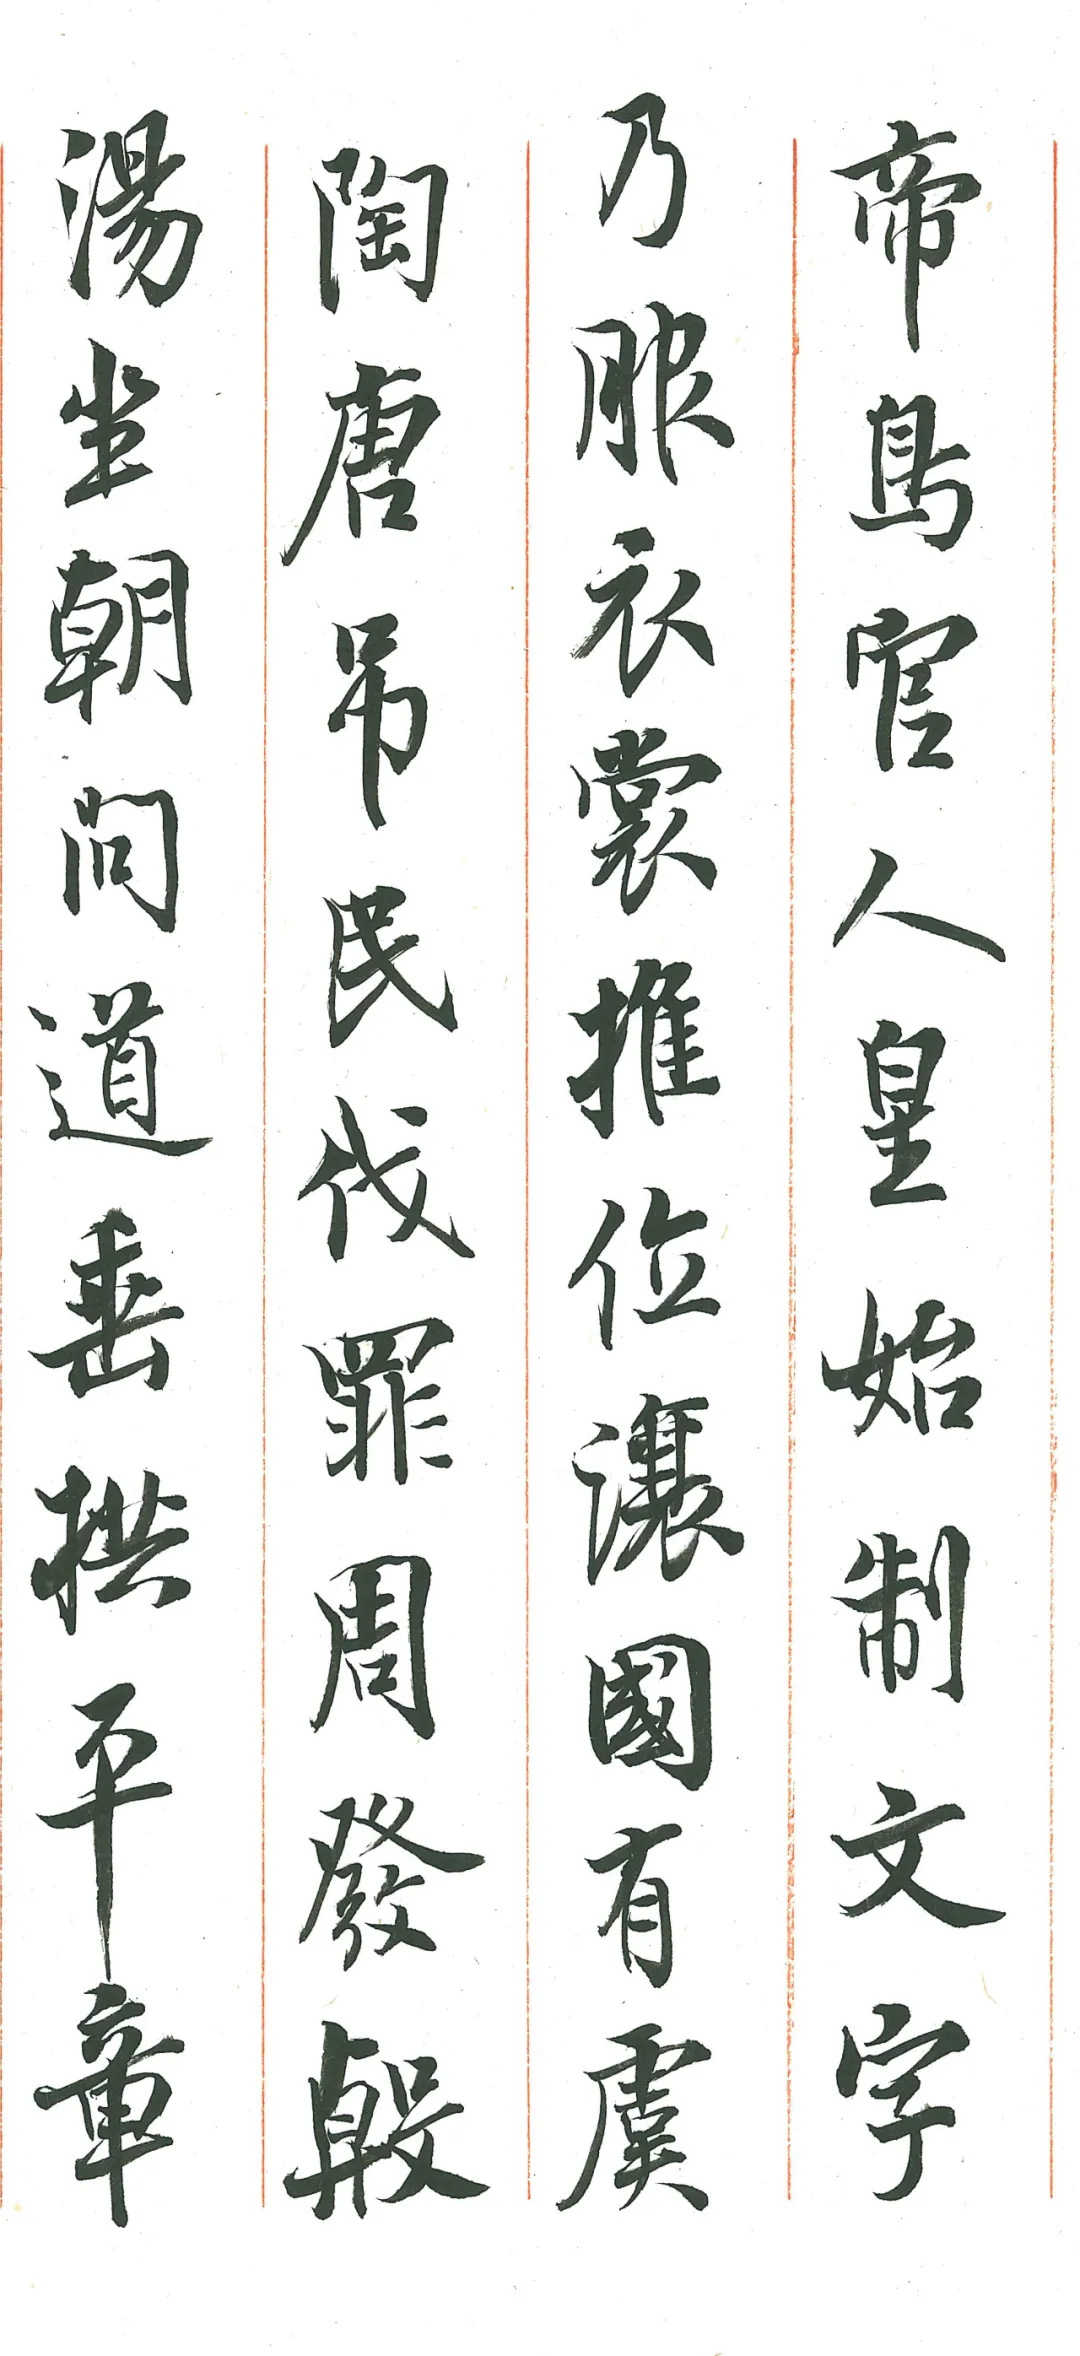 帝鳥官人皇始制文字
乃服衣裳推位讓國有虞
陶唐吊民伐罪周發殷
湯坐朝問道垂拱平章